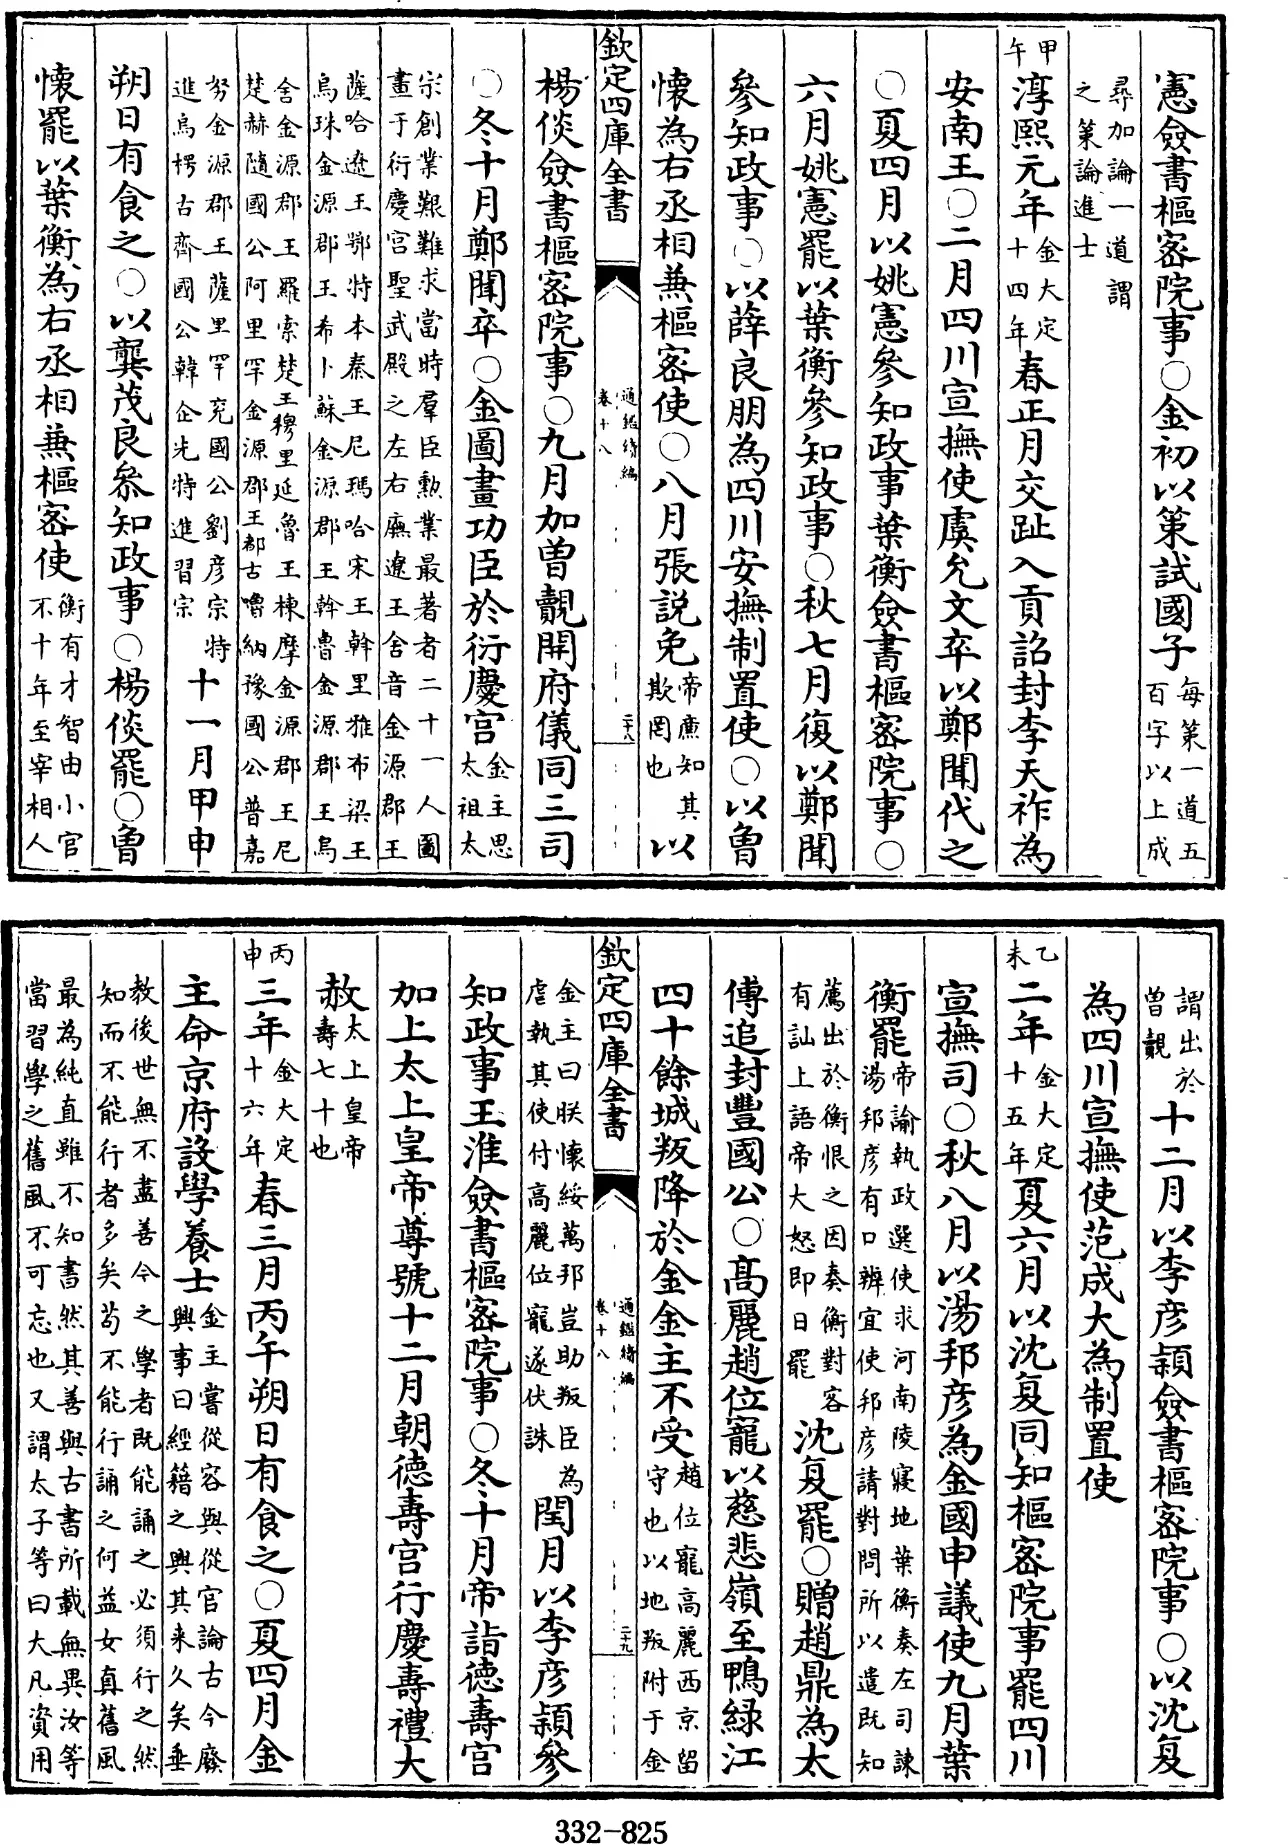 憲僉書樞密院事○金初以策試國子每策一道五百字以上成
尋加論一道謂之策論進士
甲午淳熙元年金大定十四年春正月交趾入貢詔封李天祚為
安南王○二月四川宣撫使虞允文卒以鄭聞代之
○夏四月以姚憲參知政事葉衡僉書樞密院事○
六月姚憲罷以葉衡參知政事○秋七月復以鄭聞
參知政事○以薛良朋為四川安撫制置使○以魯
懷為右丞相兼樞密使○八月張説免帝廉知其欺罔也以
欽定四庫全書 通鑑續編卷十八 二十八
楊倓僉書樞密院事○九月加曾覿開府儀同三司
○冬十月鄭聞卒○金圖畫功臣於衍慶宮金主思太祖太
宗創業艱難求當時羣臣勲業最著者二十一人圖畫于衍慶宮聖武殿之左右廡遼王舍音金源郡王
薩哈遼王鄂特本秦王尼瑪哈宋王斡里雅布梁王烏珠金源郡王希卜蘇金源郡王斡魯金源郡王烏
舍金源郡王羅索楚王穆里延魯王棟摩金源郡王尼楚赫隨國公阿里罕金源郡王都古嚕納豫國公普嘉
努金源郡王薩里罕兖國公劉彦宗特進烏楞古齊國公韓企先特進習宗十一月甲申
朔日有食之○以龔茂良叅知政事○楊倓罷○魯
懷罷以葉衡為右丞相兼樞密使衡有才智由小官不十年至宰相人
謂出於曾覿十二月以李彦頴僉書樞密院事○以沈夐
為四川宣撫使范成大為制置使
乙未二年金大定十五年夏六月以沈夐同知樞密院事罷四川
宣撫司○秋八月以湯邦彦為金國申議使九月葉
衡罷帝諭執政選使求河南陵寢地葉衡奏左司諫湯邦彦有口辨宜使邦彦請對問所以遣既知
薦出於衡恨之因奏衡對客有訕上語帝大怒即日罷沈夐罷○贈趙鼎為太
傅追封豐國公○高麗趙位寵以慈悲嶺至鴨緑江
四十餘城叛降於金金主不受趙位寵高麗西京留守也以地叛附于金
欽定四庫全書 通鑑續編卷十八 二十九
金主曰朕懐綏萬邦豈助叛臣為虐執其使付高麗位寵遂伏誅閏月以李彦頴參
知政事王淮僉書樞密院事○冬十月帝詣徳壽宮
加上太上皇帝尊號十二月朝徳壽宮行慶壽禮大
赦太上皇帝壽七十也
丙申三年金大定十六年春三月丙午朔日有食之○夏四月金
主命京府設學養士金主嘗從容與從官論古今廢興事曰經籍之興其来久矣垂
教後世無不盡善今之學者既能誦之必須行之然知而不能行者多矣茍不能行誦之何益女真舊風
最為純直雖不知書然其善與古書所載無異汝等當習學之舊風不可忘也又謂太子等曰大凡資用
332-825